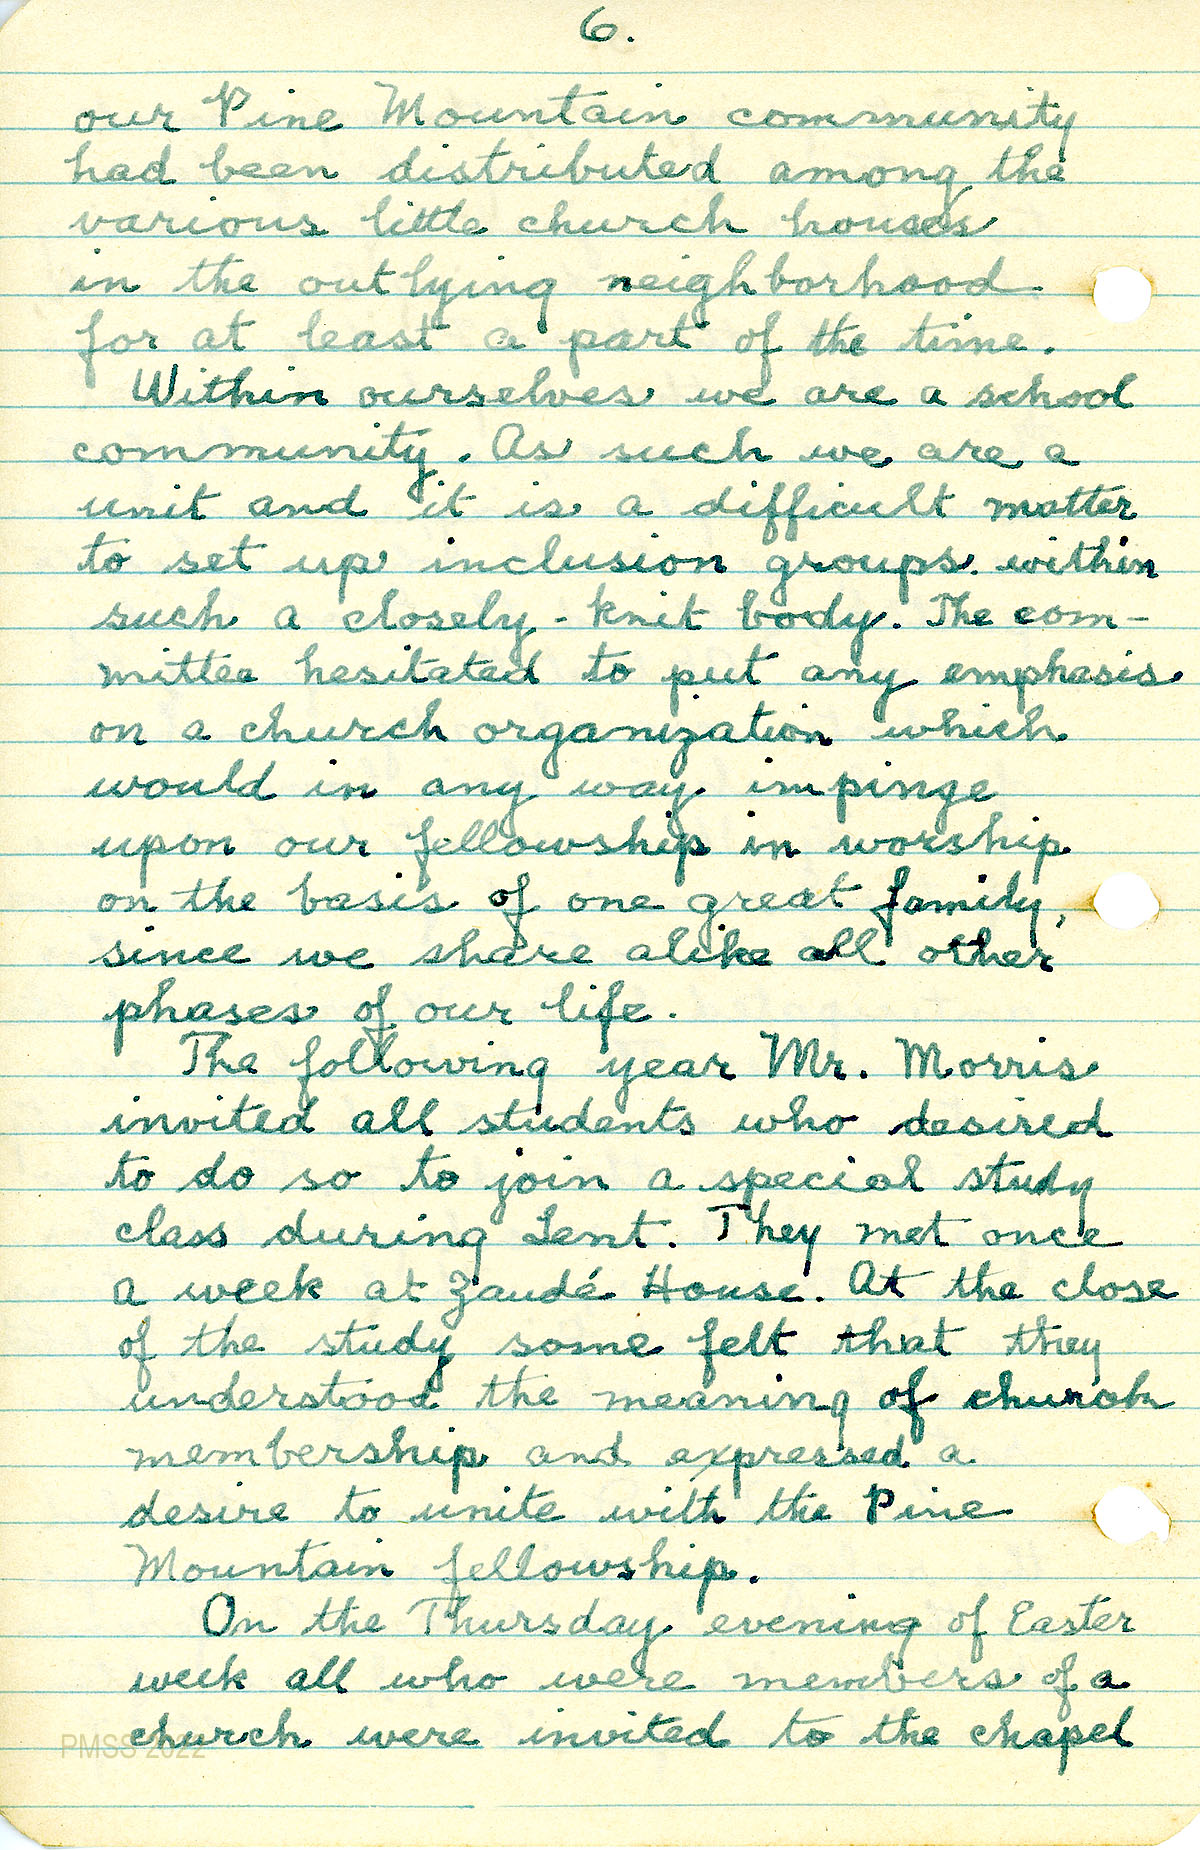 6.
our Pine Mountain community
had been distributed among the
various little church houses
in the outlying neighborhood
for at least a part of the time.
Within ourselves we are a school
community. As such we are a
unit and it is a difficult matter
to set up inclusion groups within
such a closely-knit body. The com-
mittee hesitated to put any emphasis
on a church organization which
would in any way impinge
upon our fellowship in worship
on the basis of one great family,
since we share alike all other
phases of our life.
The following year Mr. Morris
invited all students who desired
to do so to join a special study
class during Lent. They met once
a week at Zandé House. At the close
of the study some felt that they
understood the meaning of church
membership and expressed a
desire to unite with the Pine
Mountain fellowship.
On the Thursday evening of Easter
week all who were members of a
church were invited to the chapel
PMSS 2022